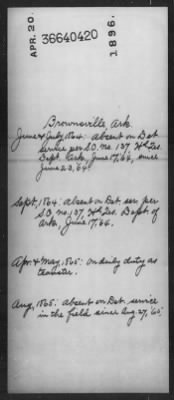 APR. 20.
36640420
1896.
Brownsville, Ark
June & July, 1864: absent on Det.
service per S.O. No. 137, Hd Qrs.
Dept. Ark., June 17, 64, since
June 23, 64.
Sept, 1864: absent on Det. ser. per
S.O. No. 137, Hd Qrs. Dept. of
Ark., June 17, 64.
Apr. & May, 1865: on daily duty as
teamster.
Aug, 1865: absent on Det. service
in the field since Aug. 27, 65.